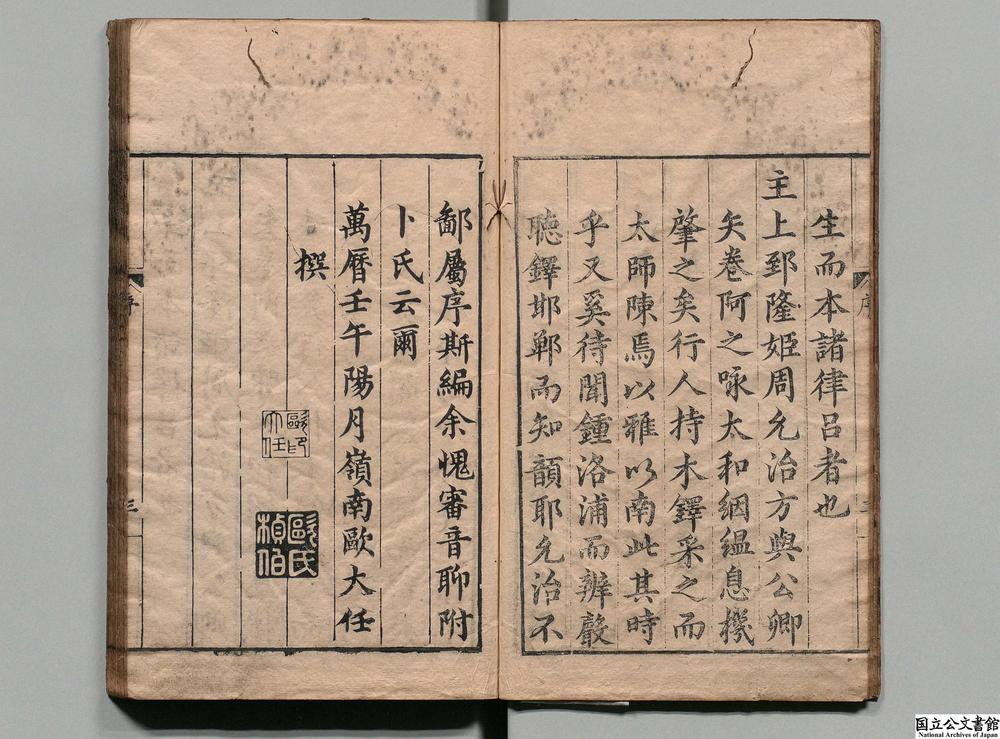 生而本諸律呂者也
主上郅隆姬周允治方與公卿
矢卷阿之咏太和絪縕息機
肇之矣行人持木鐸采之而
太師陳焉以雅以南此其時
乎又奚待聞鍾洛浦而辨聲
聽鐸邯鄲而知韻耶允治不
鄙屬序斯編余愧審音聊附
卜氏云爾
萬曆壬午陽月嶺南歐大任
撰
歐印
大任
歐氏
楨伯
序
三
国立公文書館
National Archives of Japan